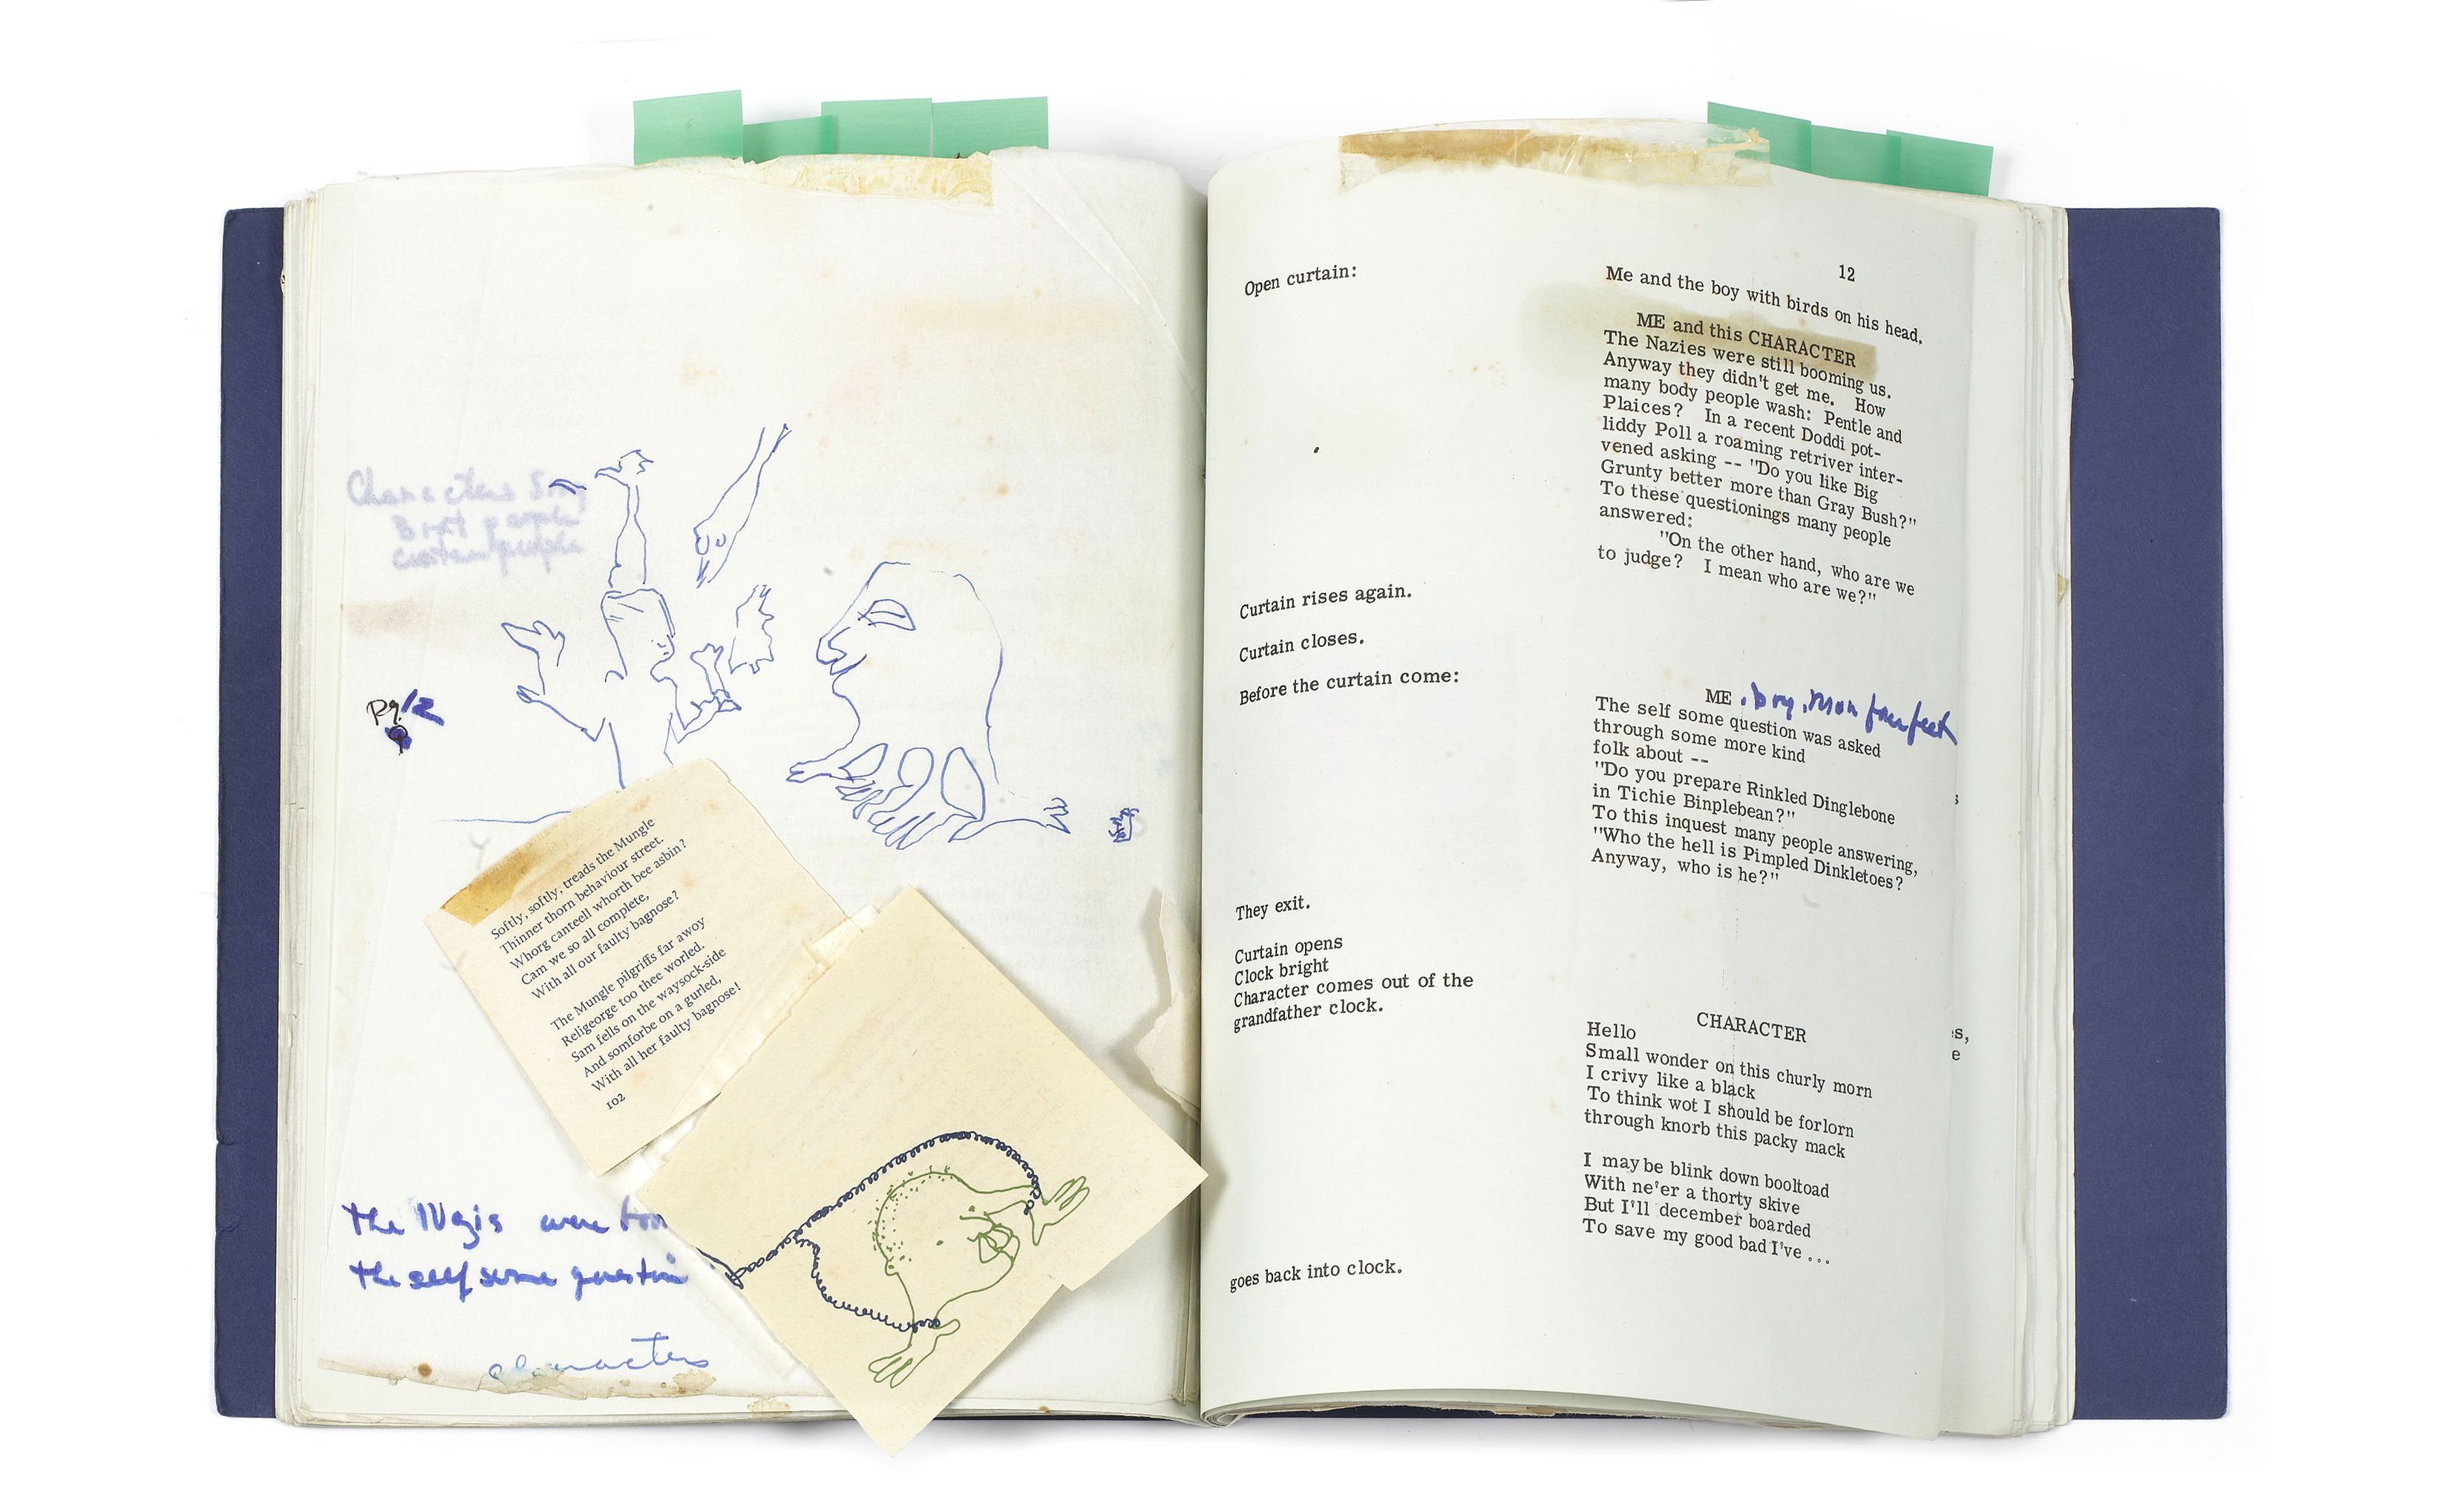 Characters Sing
people
Pg. 12
9
Softly, softly, treads the Mungle
Thinner thorn behaviour street.
Whorg canteell whorth bee asbin?
Cam we so all complete,
With all our faulty bagnose?
The Mungle pilgriffs far awoy
Religeorge too thee worled.
Sam fells on the waysock-side
And somforbe on a gurled,
With all her faulty bagnose!
102
the Nazis were
the self some question
characters
12
Open curtain:
Me and the boy with birds on his head.
ME and this CHARACTER
The Nazies were still booming us.
Anyway they didn't get me. How
many body people wash: Pentle and
Plaices? In a recent Doddi pot-
liddy Poll a roaming retriver inter-
vened asking -- "Do you like Big
Grunty better more than Gray Bush?"
To these questionings many people
answered:
"On the other hand, who are we
to judge? I mean who are we?"
Curtain rises again.
Curtain closes.
Before the curtain come:
ME , boy, Man four feet
The self some question was asked
through some more kind
folk about --
"Do you prepare Rinkled Dinglebone
in Tichie Binplebean?"
To this inquest many people answering,
"Who the hell is Pimpled Dinkletoes?
Anyway, who is he?"
They exit.
Curtain opens
Clock bright
Character comes out of the
grandfather clock.
CHARACTER
Hello
Small wonder on this churly morn
I crivy like a black
To think wot I should be forlorn
through knorb this packy mack
I may be blink down booltoad
With ne'er a thorty skive
But I'll december boarded
To save my good bad I've ...
goes back into clock.
s,
e